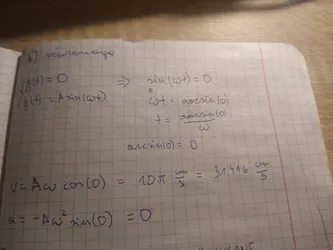 y(t) = 0 ⇒ sin(ωt) = 0
y(t) = A sin(ωt) ωt = arcsin(0)
t = arcsin(0)/ω
arcsin(0) = 0
v = Aω cos(0) = 10π cm/s = 31,416 cm/s
a = -Aω² sin(0) = 0